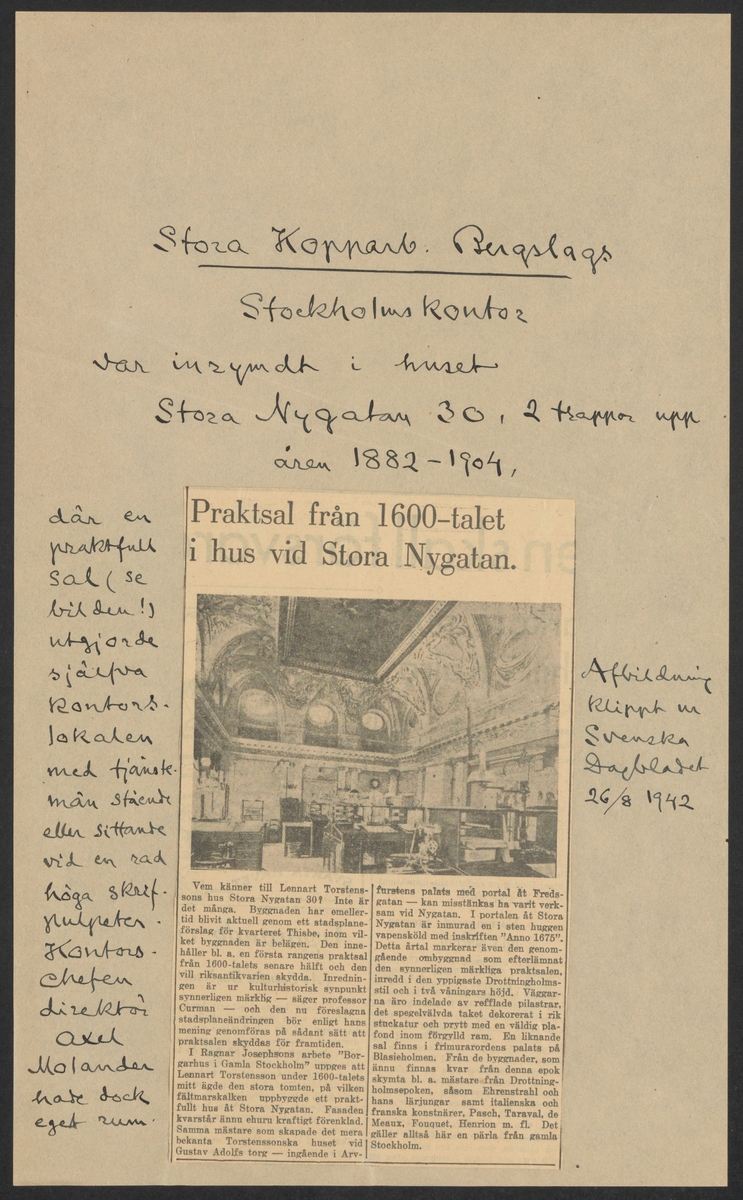 Stora Kopparb. Bergslags
Stockholmskontor
var inrymdt i huset
Stora Nygatan 30, 2 trappor upp
åren 1882-1904,
där en
praktfull
sal (se
bilden!)
utgjorde
själfva
kontors-
lokalen
med tjänste-
män stående
eller sittande
vid en rad
höga skrif-
pulpeter.
Kontors-
chefen
direktör
Axel
Molander
hade dock
eget rum.
Praktsal från 1600-talet
i hus vid Stora Nygatan.
Vem känner till Lennart Torstens-
sons hus Stora Nygatan 30? Inte är
det många. Byggnaden har emeller-
tid blivit aktuell genom ett stadsplane-
förslag för kvarteret Thisbe, inom vil-
ket byggnaden är belägen. Den inne-
håller bl. a. en första rangens praktsal
från 1600-talets senare hälft och den
vill riksantikvarien skydda. Inrednin-
gen är ur kulturhistorisk synpunkt
synnerligen märklig — säger professor
Curman — och den nu föreslagna
stadsplaneändringen bör enligt hans
mening genomföras på sådant sätt att
praktsalen skyddas för framtiden.
I Ragnar Josephsons arbete "Bor-
garhus i Gamla Stockholm" uppges att
Lennart Torstensson under 1600-talets
mitt ägde den stora tomten, på vilken
fältmarskalken uppbyggde ett prakt-
fullt hus åt Stora Nygatan. Fasaden
kvarstår ännu ehuru kraftigt förenklad.
Samma mästare som skapade det mera
bekanta Torstenssonska huset vid
Gustav Adolfs torg — ingående i Arv-
furstens palats med portal åt Freds-
gatan — kan misstänkas ha varit verk-
sam vid Nygatan. I portalen åt Stora
Nygatan är inmurad en i sten huggen
vapensköld med inskriften "Anno 1675".
Detta årtal markerar även den genom-
gående ombyggnad som efterlämnat
den synnerligen märkliga praktsalen,
inredd i den yppigaste Drottningholms-
stil och i två våningars höjd. Väggar-
na äro indelade av refflade pilastrar,
det spegelvälvda taket dekorerat i rik
stuckatur och prytt med en väldig pla-
fond inom förgylld ram. En liknande
sal finns i frimurarordens palats på
Blasieholmen. Från de byggnader, som
ännu finnas kvar från denna epok
skymta bl. a. mästare från Drottning-
holmsepoken, såsom Ehrenstrahl och
hans lärjungar samt italienska och
franska konstnärer, Pasch, Taraval, de
Meaux, Fouquet, Henrion m. fl. Det
gäller alltså här en pärla från gamla
Stockholm.
Afbildning
klippt ur
Svenska
Dagbladet
26/8 1942